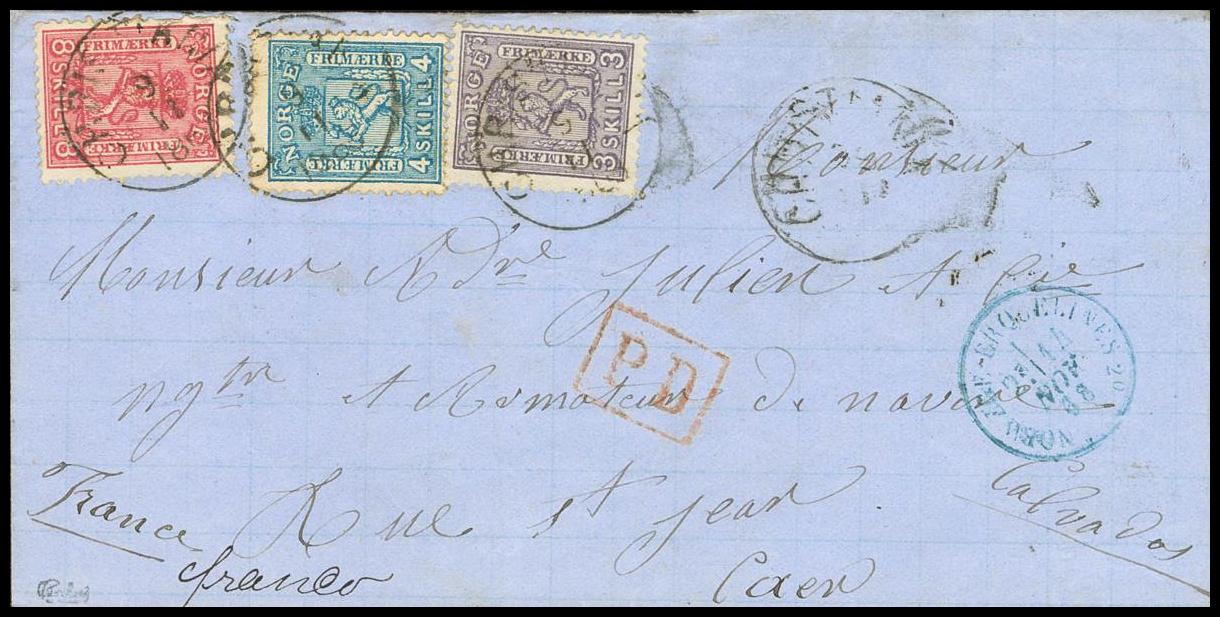 FRIMÆRKE NORGE 8 SKILL 8 FRIMÆRKE
FRIMÆRKE NORGE 4 SKILL 4 FRIMÆRKE
FRIMÆRKE NORGE 3 SKILL 3 FRIMÆRKE
Monsieur
Monsieur Adre Julien & Cie
P D
ngtr et Armateur de navires
France Rue St Jean Calvados
franco Caen
ERQUELINES 20
14 NOV 68